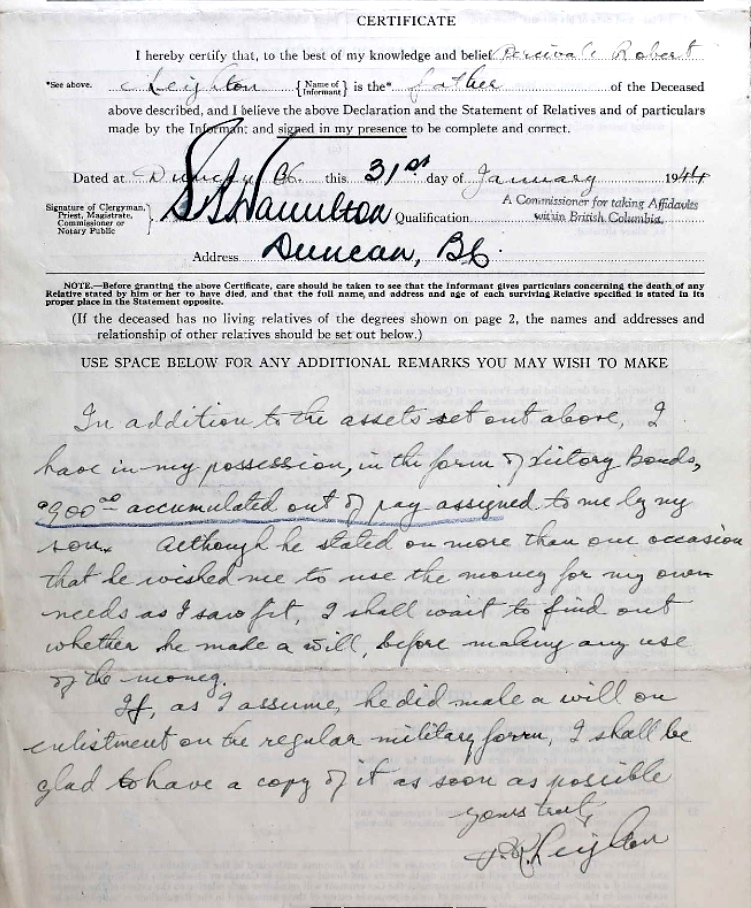 CERTIFICATE
I hereby certify that, to the best of my knowledge and belief Percival Robert
*See above. Leighton {Name of Informant} is the* father of the Deceased
above described, and I believe the above Declaration and the Statement of Relatives and of particulars
made by the Informant and signed in my presence to be complete and correct.
Dated at Duncan, BC. this 31st day of January 1944
Signature of Clergyman, Priest, Magistrate, Commissioner or Notary Public } Hamilton Qualification A Commissioner for taking Affidavits within British Columbia.
Address Duncan, BC.
NOTE.—Before granting the above Certificate, care should be taken to see that the Informant gives particulars concerning the death of any
Relative stated by him or her to have died, and that the full name, and address and age of each surviving Relative specified is stated in its
proper place in the Statement opposite.
(If the deceased has no living relatives of the degrees shown on page 2, the names and addresses and
relationship of other relatives should be set out below.)
USE SPACE BELOW FOR ANY ADDITIONAL REMARKS YOU MAY WISH TO MAKE
In addition to the assets set out above, I
have in my possession, in the form of Victory Bonds,
$900.00 accumulated out of pay assigned to me by my
son. Although he stated on more than one occasion
that he wished me to use the money for my own
needs as I saw fit, I shall wait to find out
whether he made a will, before making any use
of the money.
If, as I assume, he did make a will on
enlistment on the regular military form, I shall be
glad to have a copy of it as soon as possible
yours truly
P.R. Leighton